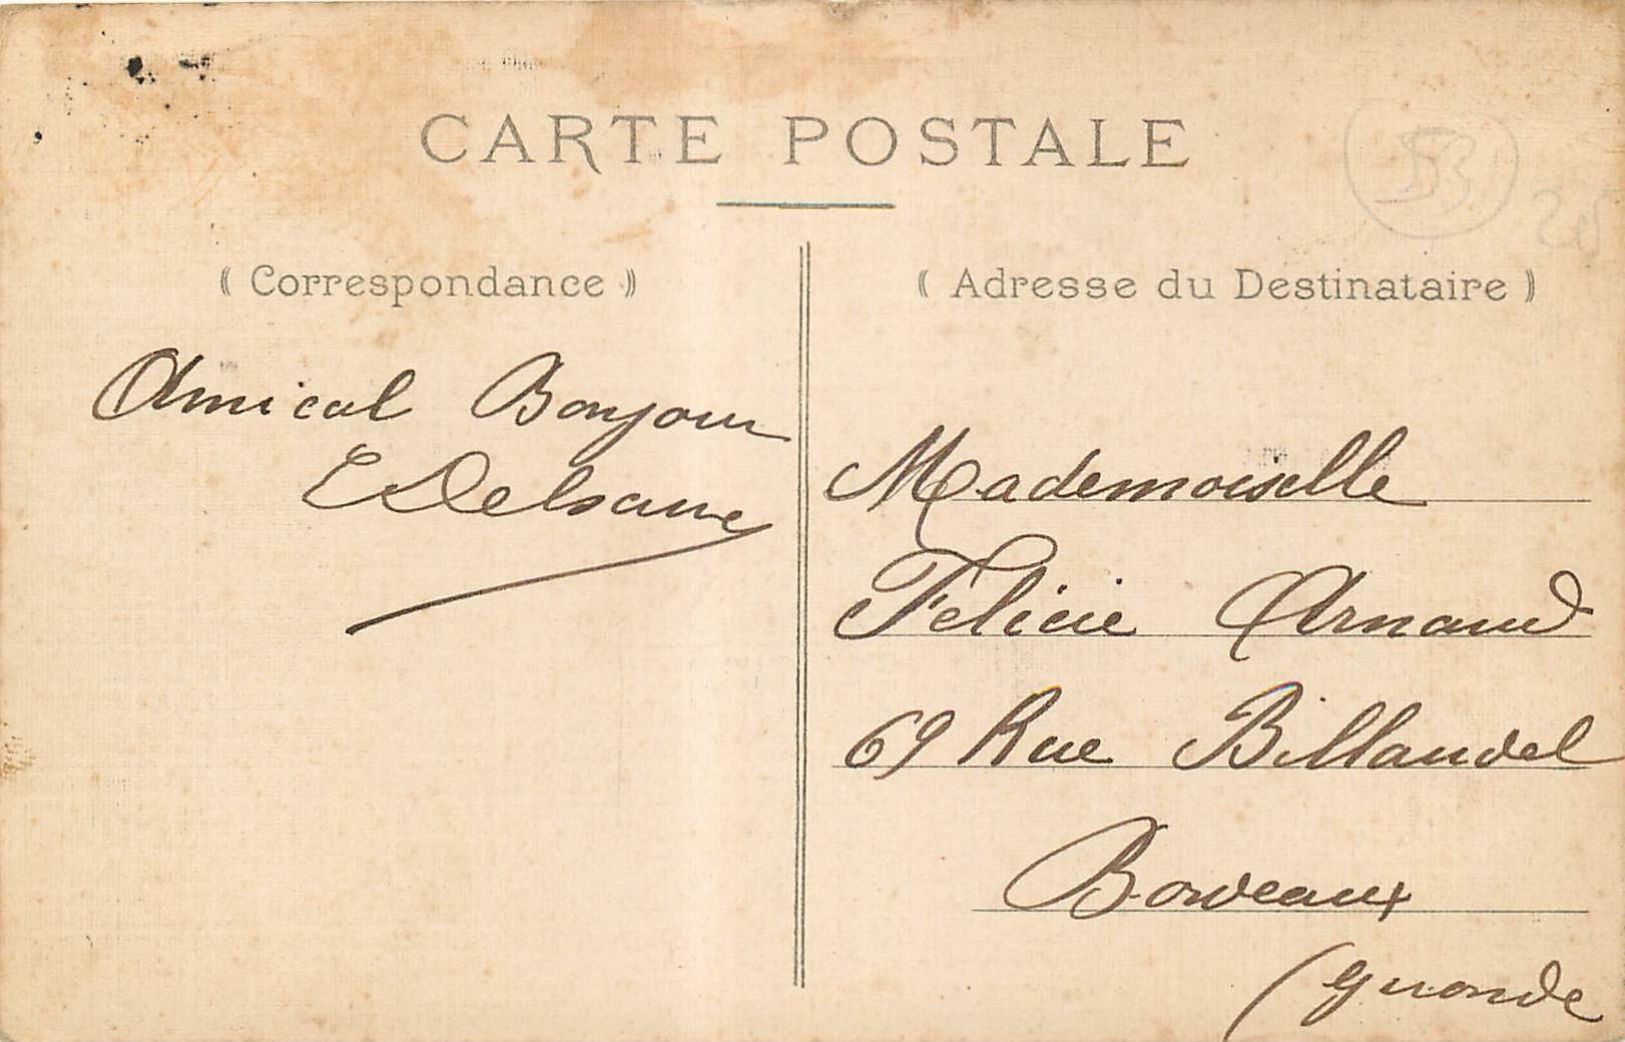 CARTE POSTALE
53
25
(Correspondance)
Amical Bonjour
(Adresse du Destinataire)
Mademoiselle
Felicie Arnaud
69 Rue Billaudel
Bordeaux
(Gironde